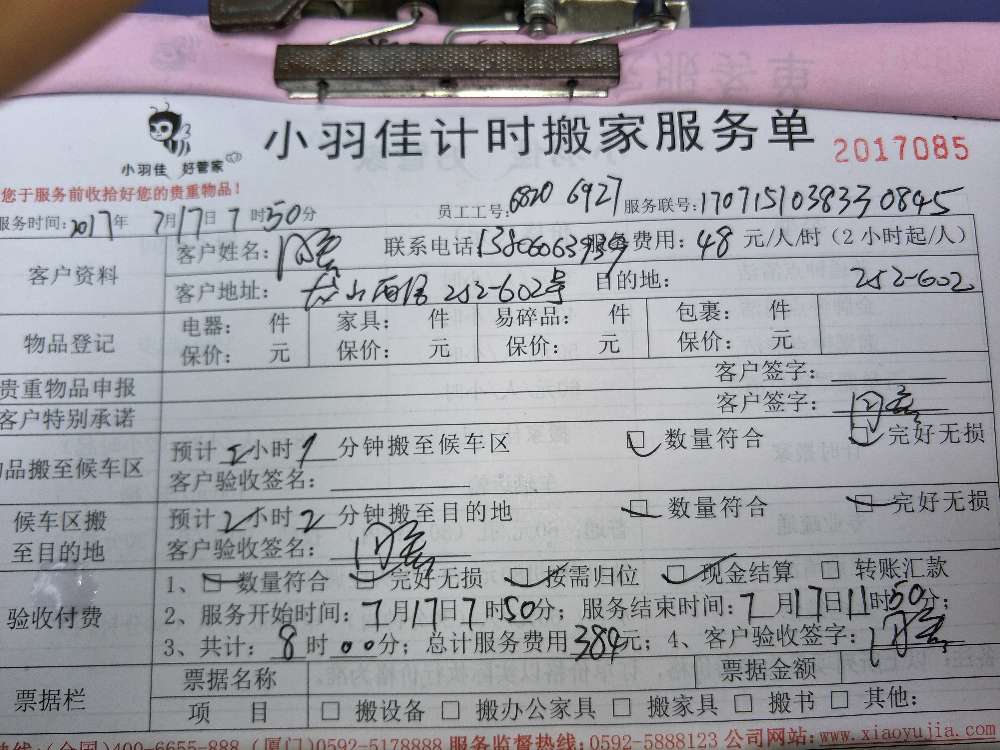 小羽佳 好管家
小羽佳计时搬家服务单
2017085
您于服务前收拾好您的贵重物品！
服务时间:2017年 7月17日7时50分 员工工号:6820 6927 服务联号:170715103833 0845
客户资料 客户姓名: 联系电话 服务费用: 48 元/人/时 (2小时起/人)
客户地址: 252-602号 目的地: 252-602
物品登记 电器: 件 家具: 件 易碎品: 件 包裹: 件
保价: 元 保价: 元 保价: 元 保价: 元
贵重物品申报 客户签字:
客户特别承诺 客户签字:
物品搬至候车区 预计 2小时 分钟搬至候车区 □ 数量符合 □ 完好无损
客户验收签名:
候车区搬至目的地 预计2小时2分钟搬至目的地 □ 数量符合 □ 完好无损
客户验收签名:
验收付费 1、□ 数量符合 □ 完好无损 □ 按需归位 □ 现金结算 □ 转账汇款
2、服务开始时间: 7月17日7时50分; 服务结束时间: 7月17日11时50分;
3、共计: 8时00分; 总计服务费用384元; 4、客户验收签字:
票据栏 票据名称 票据金额
项 目 □ 搬设备 □ 搬办公家具 □ 搬家具 □ 搬书 □ 其他:
热线:(全国)400-6655-888 (厦门)0592-5178888 服务监督热线:0592-5888123 公司网站:www.xiaoyujia.com